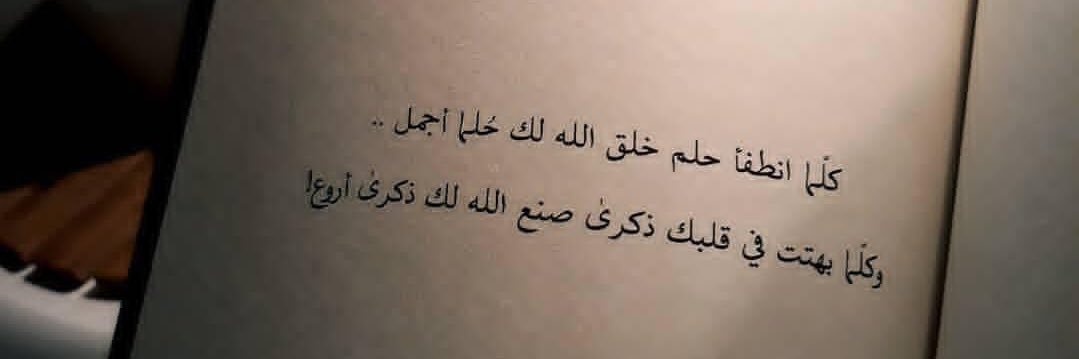 كلّما انطفأ حلم خلق الله لك حُلما أجمل ..
وكلّما بهتت في قلبك ذكرىٰ صنع الله لك ذكرىٰ أروع!